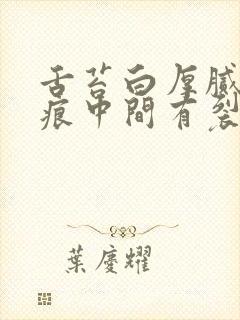 舌苔白厚膩
痕中間有裂
葉慶耀